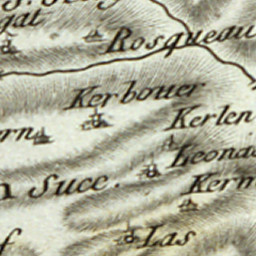 gat
Rosqueau
Kerbouer
Kerlen
ern
Leona
n Suce.
Kerm
Las